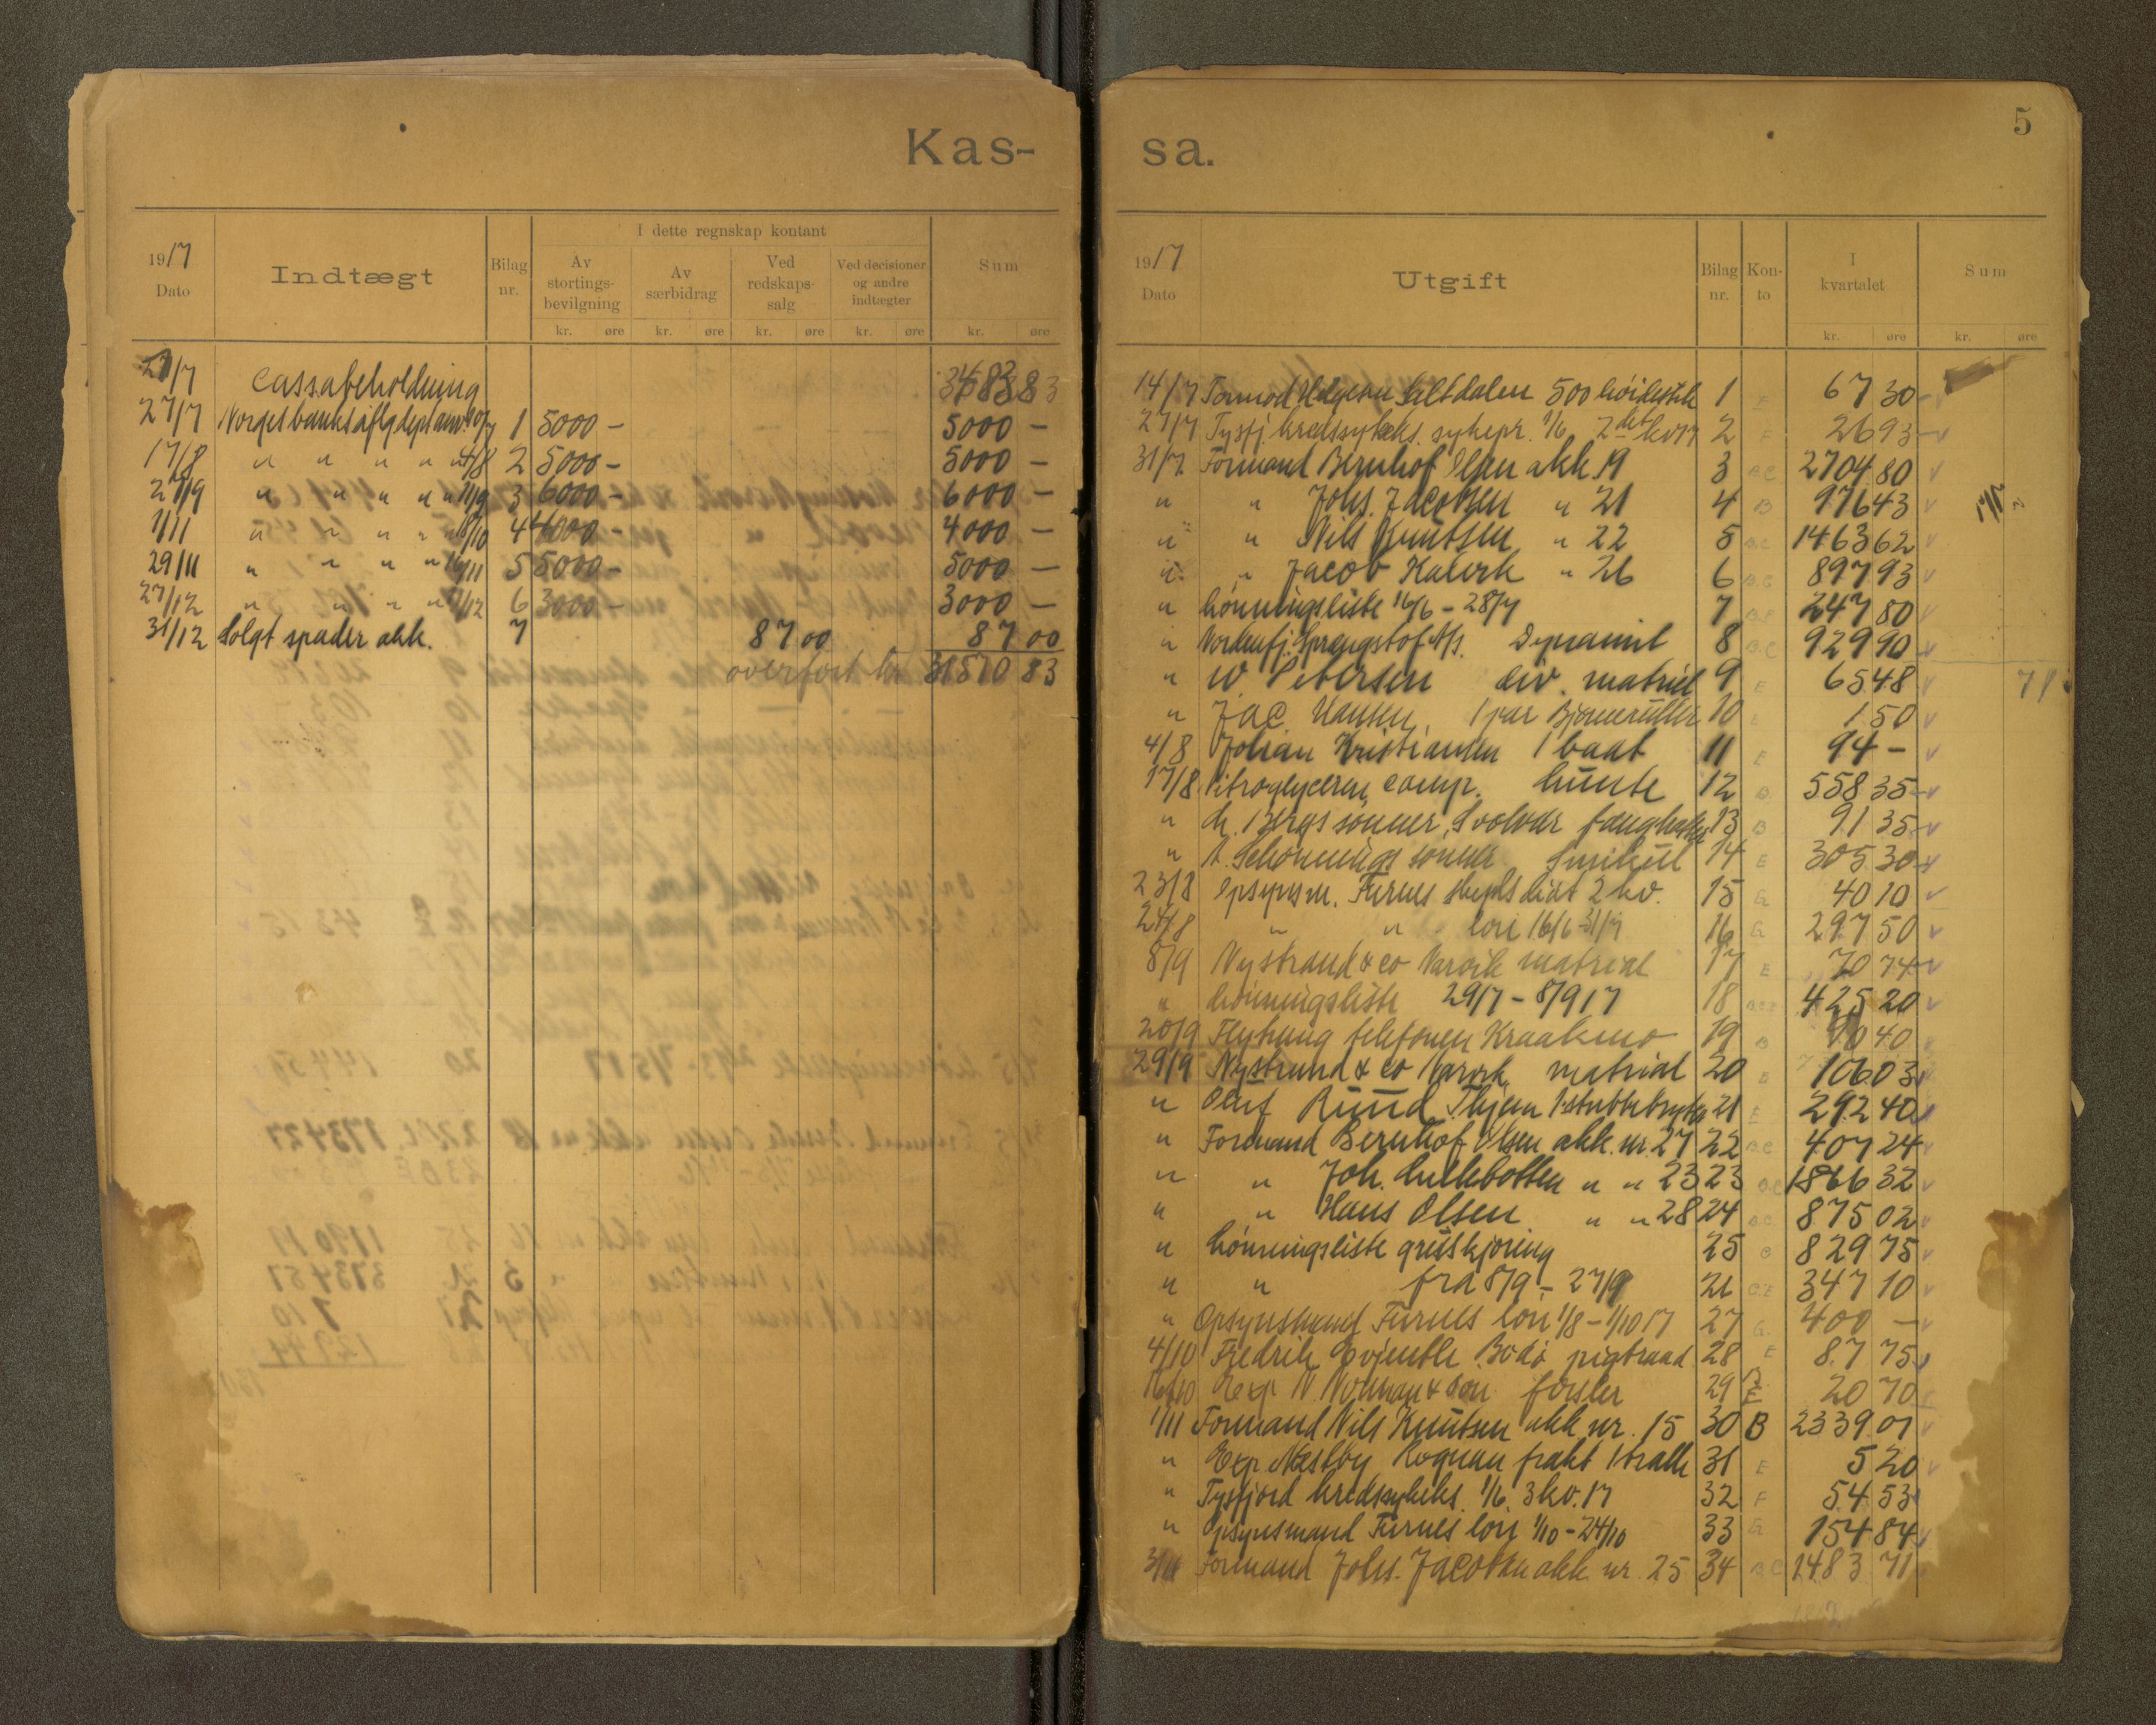 Kas-
I dette regnskap kontant
1917 Dato Indtægt Bilag nr. Av stortings-bevilgning Av særbidrag Ved redskaps-salg Ved decisioner og andre indtægter Sum
kr. øre kr. øre kr. øre kr. øre kr. øre
/7 Cassabeholdning 83
27/7 Norges banks 1 5000 - 5000 -
17/8 " " " " 4/8 2 5000 - 5000 -
27/9 " " " " " 11/9 3 6000 - 6000 -
1/11 " " " " 18/10 4 4000 - 4000 -
29/11 " " " " 16/11 5 5000 - 5000 -
27/12 " " " " /12 6 3000 - 3000 -
31/12 Solgt spader akk. 7 87 00 87 00
overført kr 31510 83
sa.
5
1917 Dato Utgift Bilag nr. Kon-to I kvartalet Sum
kr. øre kr. øre
14/7 Saltdalen 500 1 E 67 30
27/7 Tysfj. kredssykeks. sykepr. 1/6 2det kv 17 2 F 26 93
31/7 Formand Bernhof Olsen akk 19 3 B.C 2704 80
" " Johs. Jacobsen " 21 4 B 976 43
" " Nils Knutsen " 22 5 B.C 1463 62
" " Jacob " 26 6 B.C 897 93
" Lønningsliste 16/6 - 28/7 7 247 80
" Nordenfj. Sprængstof A/s. Dynamit 8 B.C 929 90
" W. Petersen div. matriel 9 E 65 48
" Jac. Hansen, 1 par 10 E 1 50
4/8 Johan Kristiansen 1 baat 11 E 94 -
17/8 Nitroglycerin comp. Lunte 12 B 558 35
" Bergs sønner, Svolvær 13 B 91 35
" Schønnings sønner 14 E 305 30
23/8 Opsynsm. Furnes diæt 2 kv. 15 G 40 10
24/8 " " løn 16/6 - 31/7 16 G 297 50
8/9 Nystrand & co Narvik matrial 17 E 70 74
" Lønningsliste 29/7 - 8/9 17 18 425 20
20/9 Flytning telefonen Kraakmo 19 B 40
29/9 Nystrand & co Narvik matrial 20 E 106 03
" Oluf Ruud, 21 E 292 40
" Formand Bernhof Olsen akk. nr. 27 22 B.C 407 24
" " Joh. " " 23 23 B.C 1866 32
" " Hans Olsen " " 28 24 B.C 875 02
" Lønningsliste gruskjøring 25 829 75
" " fra 8/9 - 27/9 26 347 10
" Opsynsmand Furnes løn 1/8 - 1/10 17 27 G. 400 -
4/10 Fredrik Evjenth Bodø pigtraad 28 E 87 75
16/10 Exp N Notman & søn 29 E 20 70
1/11 Formand Nils Knutsen akk nr. 15 30 B 2339 01
" Exp. Næstby Rognan frakt 1 tralle 31 E 5 20
" Tysfjord kredssykeks. 1/6. 3 kv. 17 32 F 54 53
" Opsynsmand Furnes løn 1/10 - 24/10 33 G 154 84
3/11 Formand Johs. Jacobsen akk nr. 25 34 B.C 1483 71